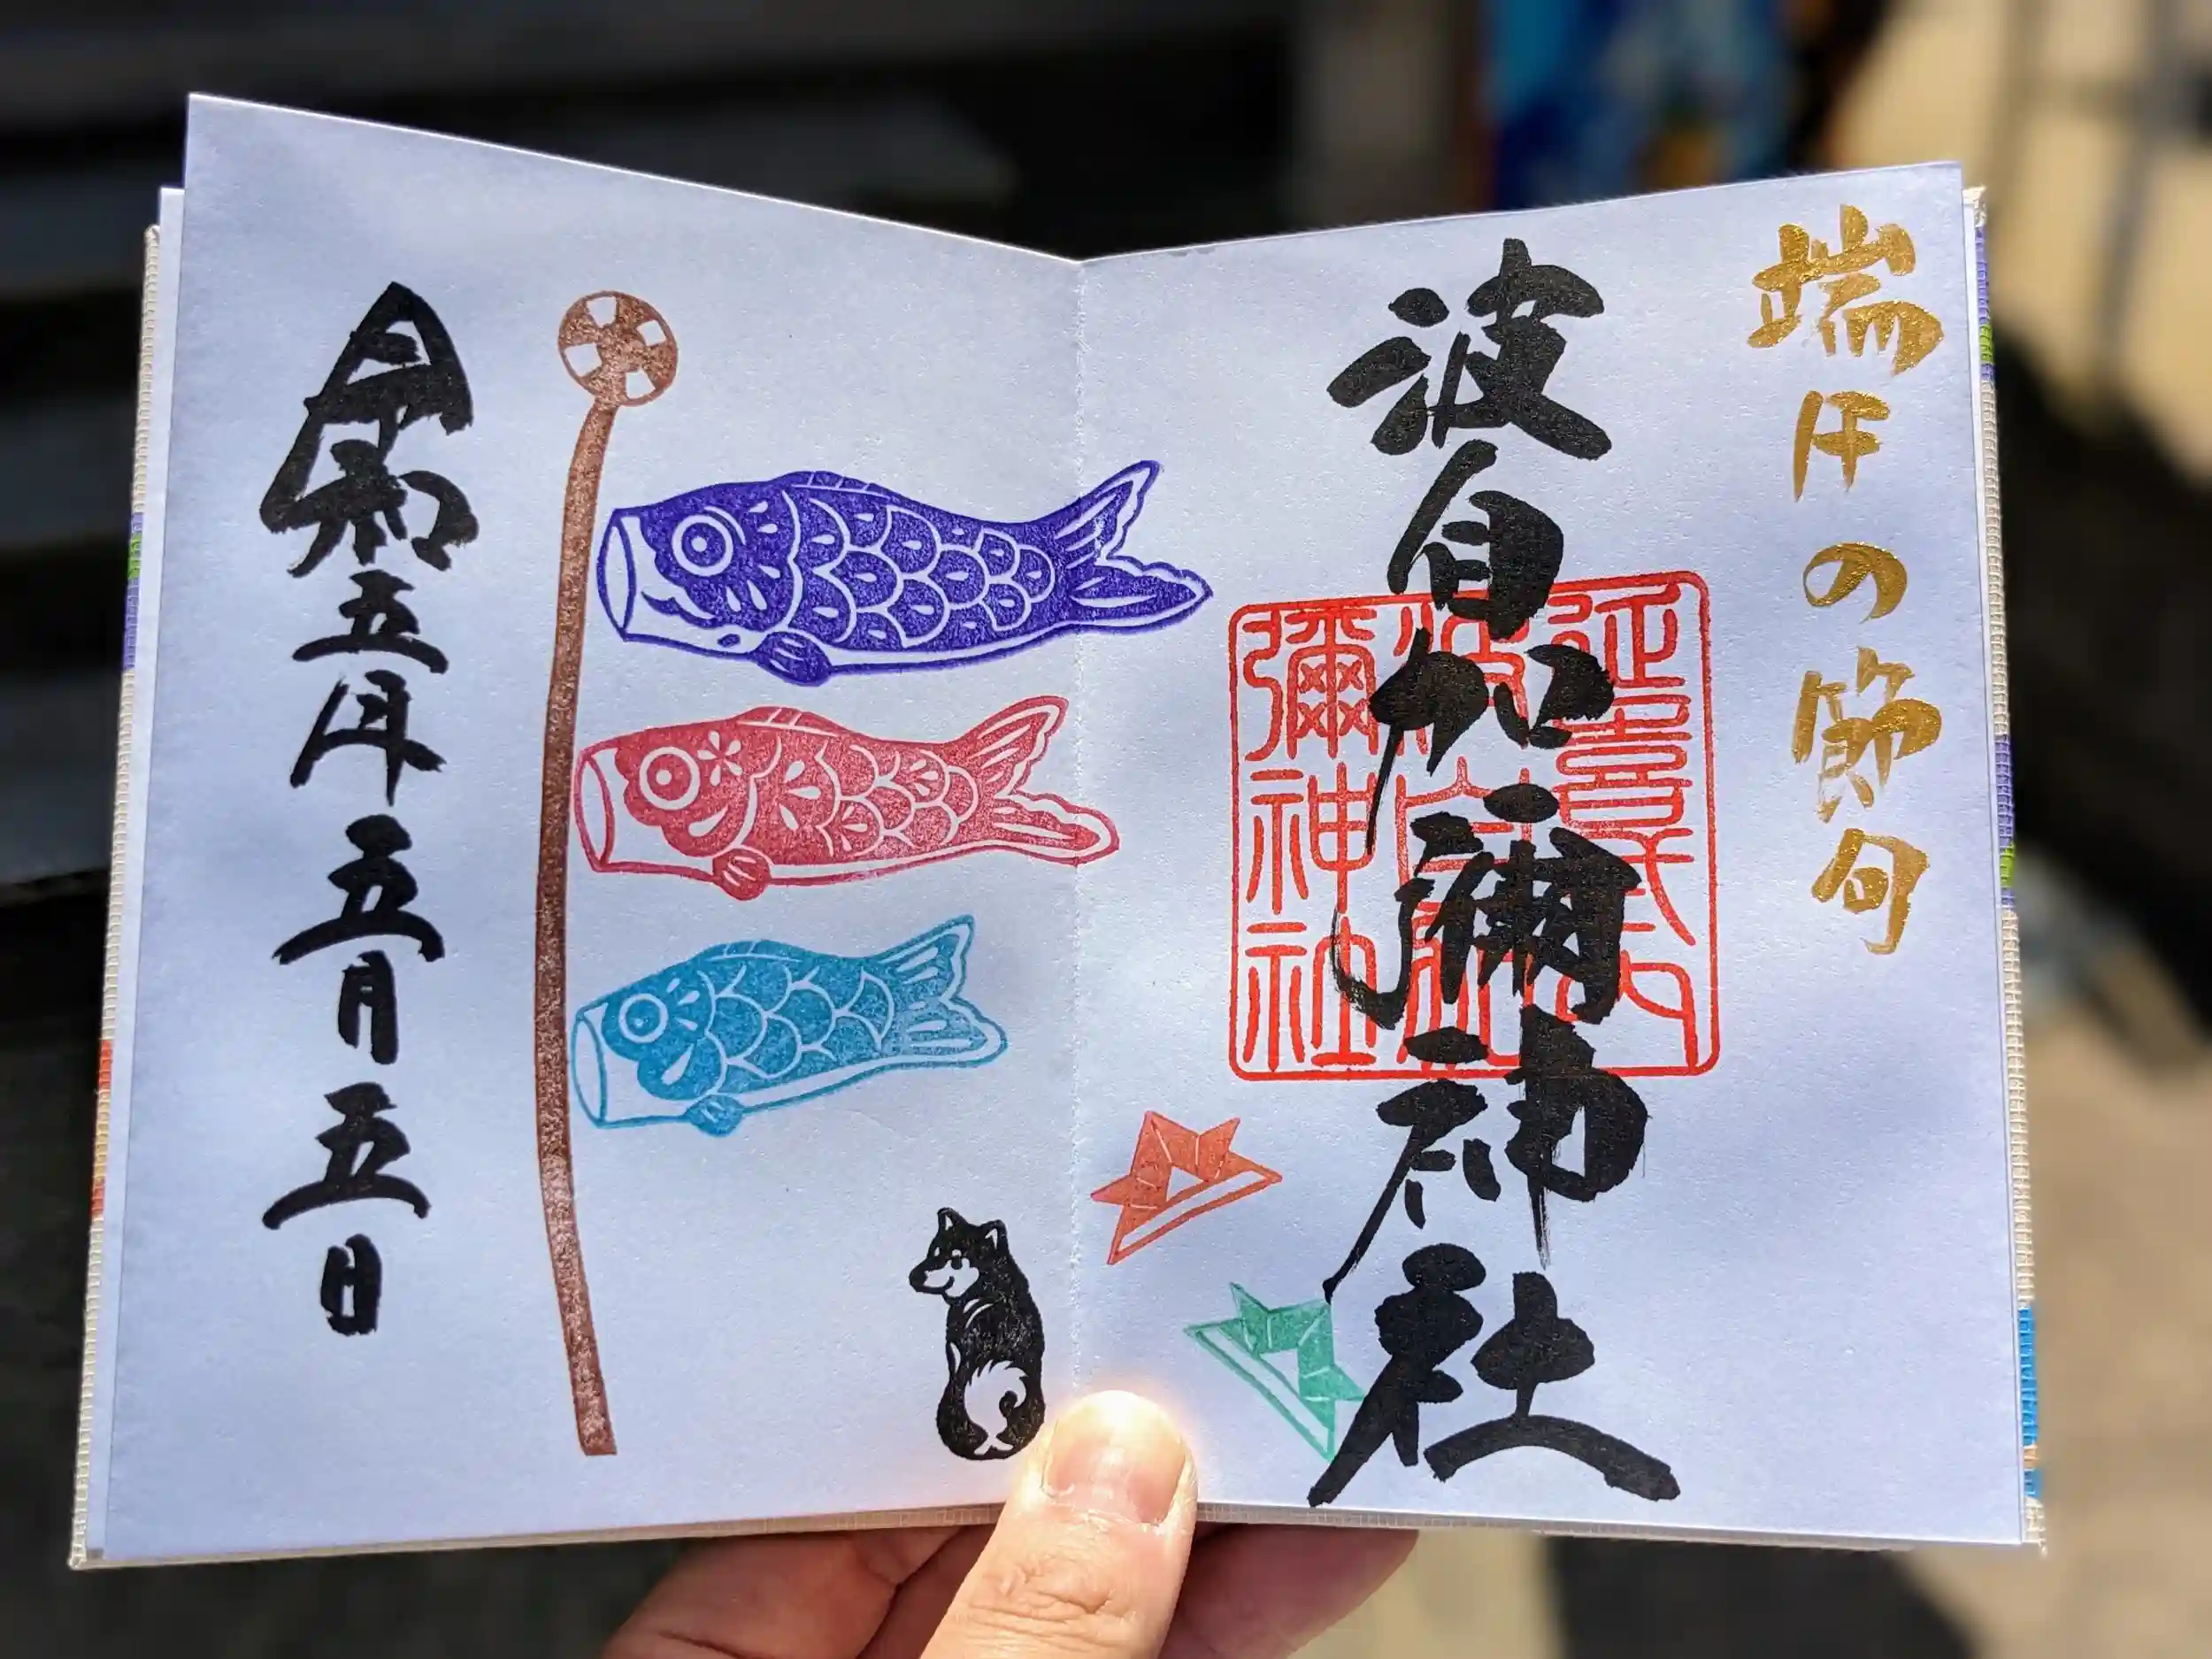 端午の節句
波自加彌神社
延喜式内
波自加
彌神社
令和五年
五月五日